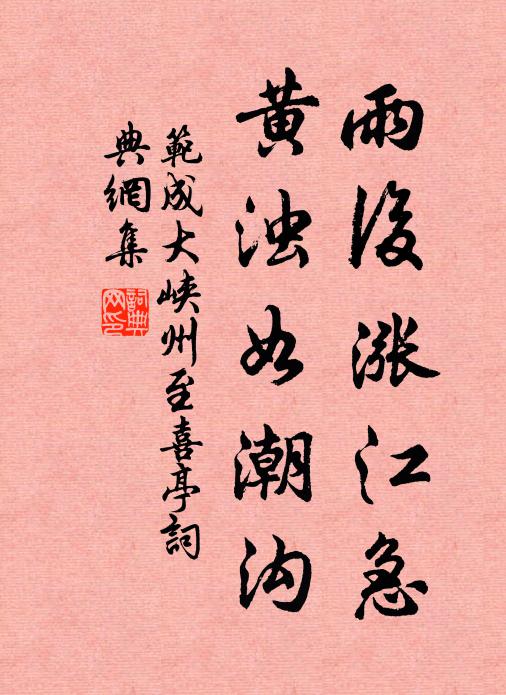 雨後漲江急
黄浊如潮沟
範成大峽州至喜亭詞
典網集
詞典网印